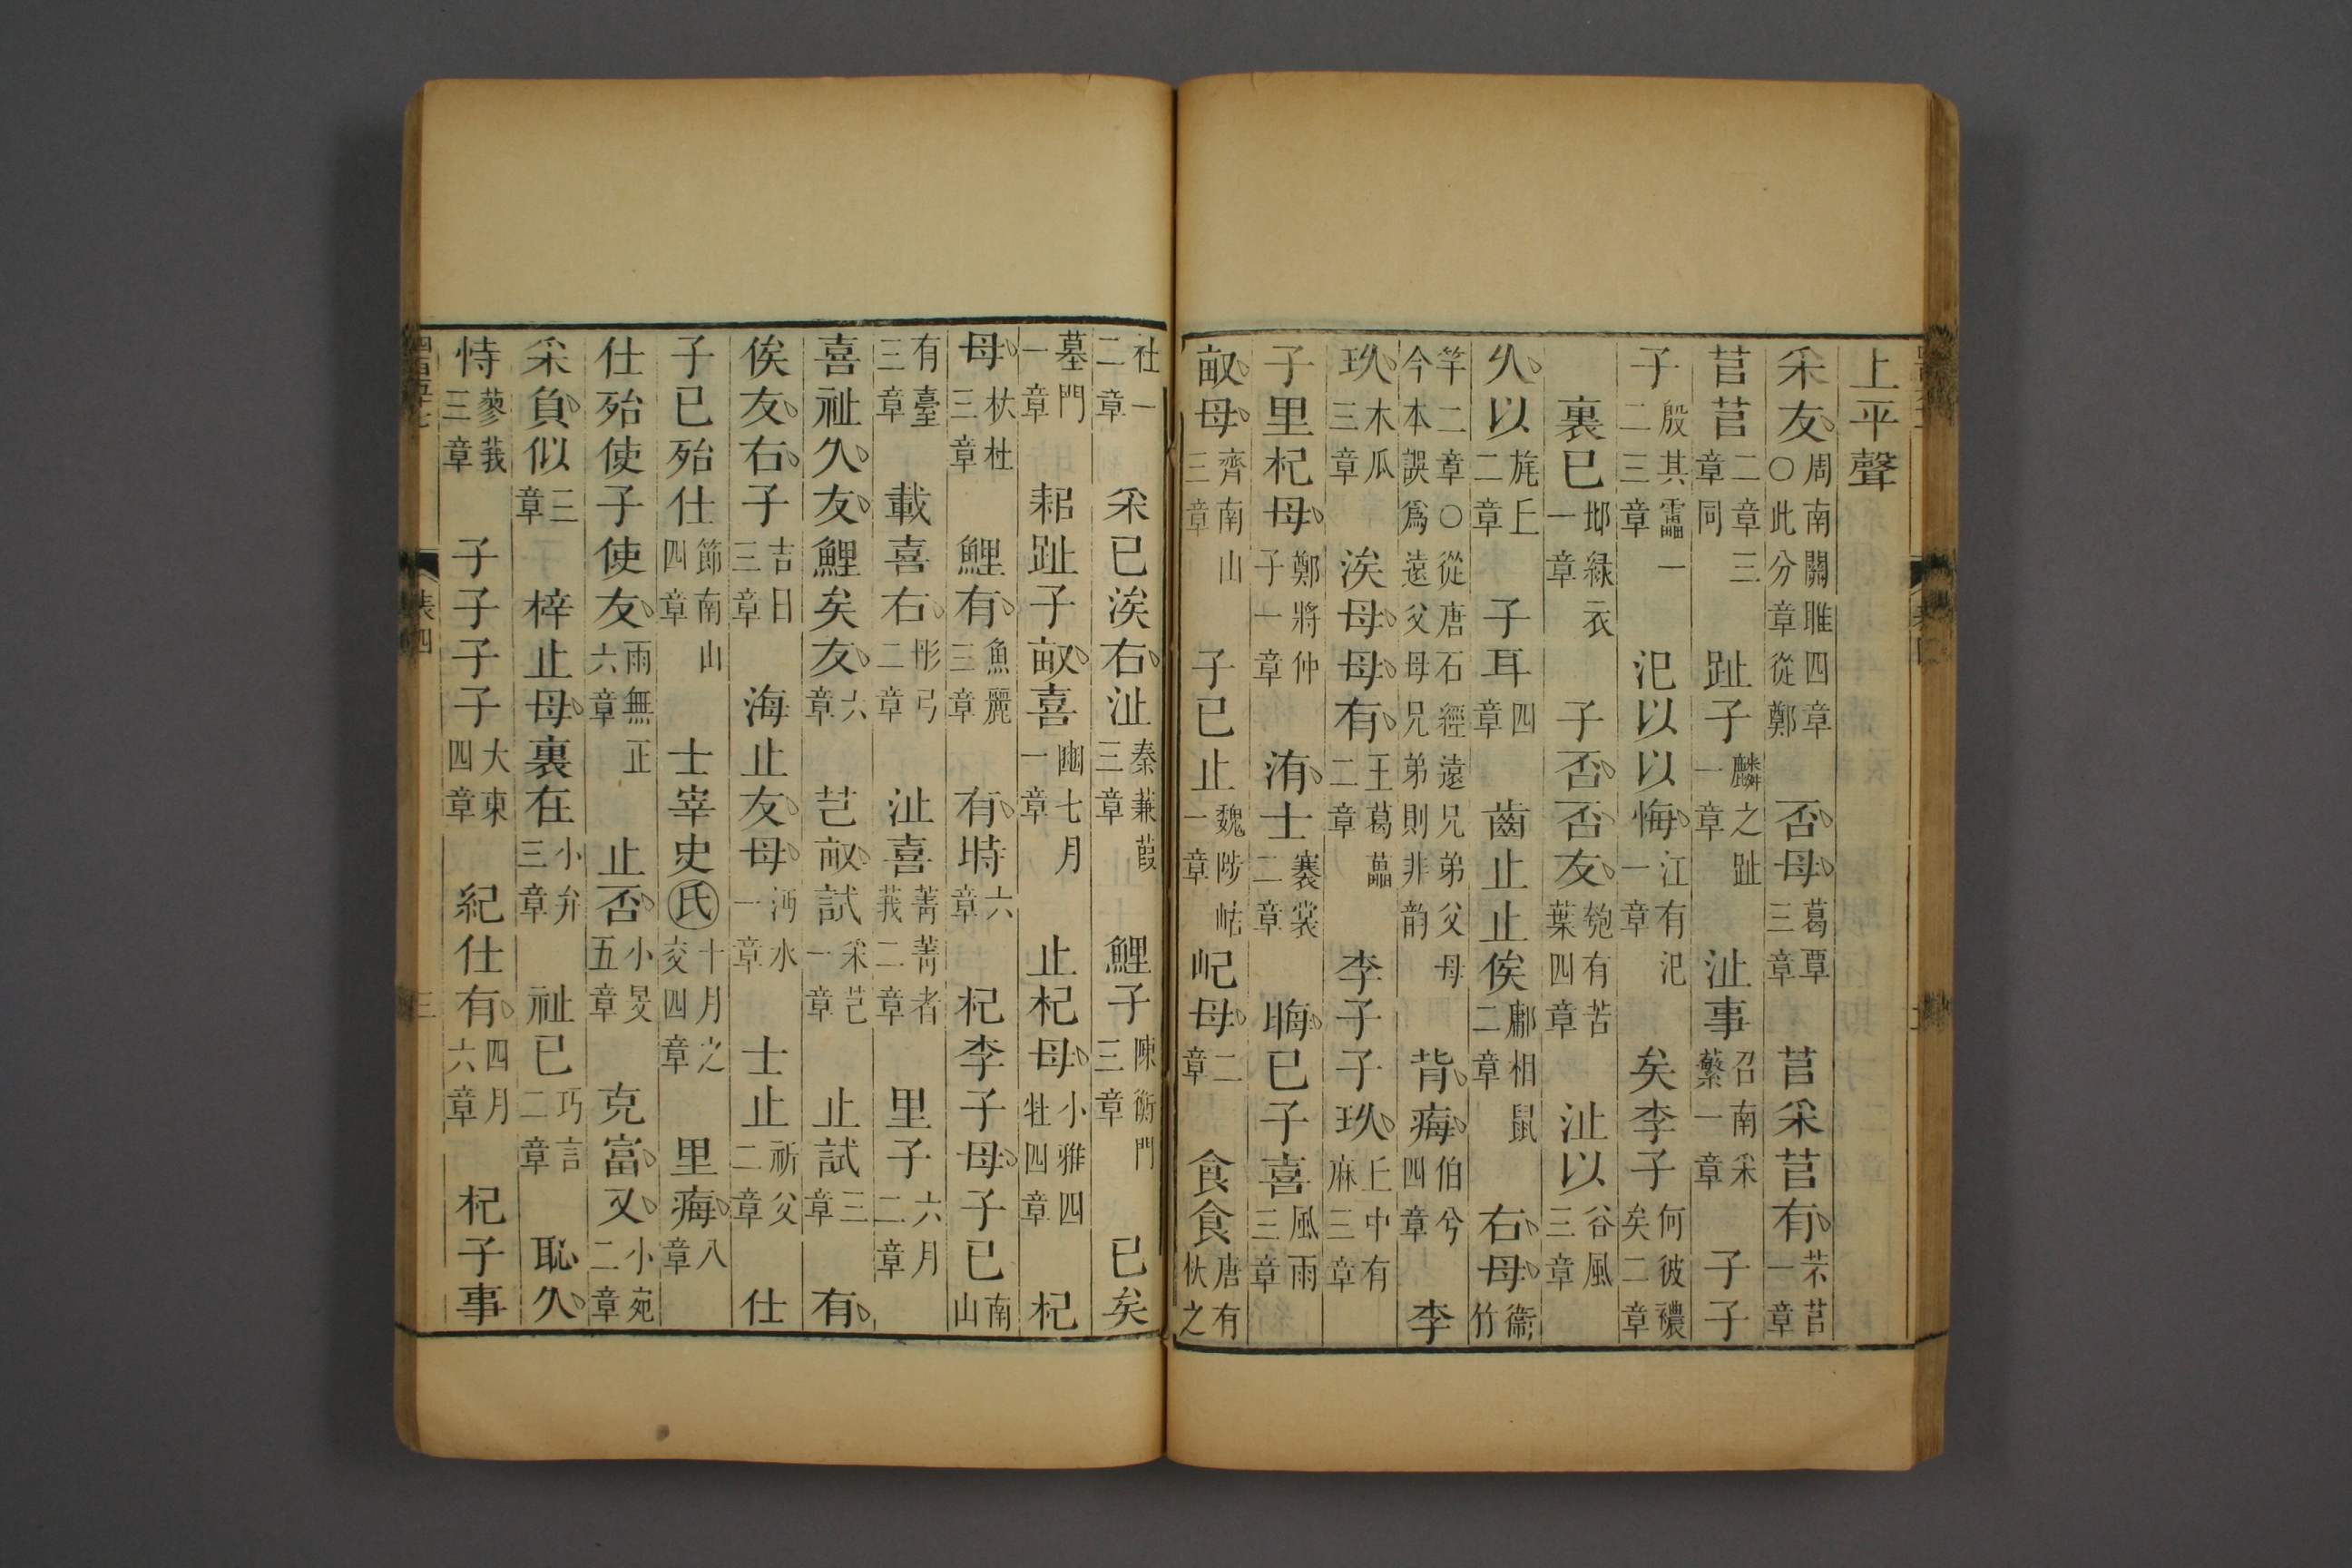 上平聲
采友周南關雎四章〇此分章從鄭 否母葛覃三章 苢采苢有芣苢一章
苢苢二章三章同 趾子麟之趾一章 沚事召南采蘩一章 子子
子殷其靁一二三章 汜以以悔江有汜一章 矣李子何彼襛矣二章
裏已邶緑衣一章 子否否友匏有苦葉四章 沚以谷風三章
久以旄丘二章 子耳四章 齒止止俟鄘相鼠二章 右母衞竹
竿二章〇從唐石經遠兄弟父母今本誤爲遠父母兄弟則非韵 背痗伯兮四章 李
玖木瓜三章 涘母母有王葛藟二章 李子子玖丘中有麻三章
子里杞母鄭將仲子一章 洧士褰裳二章 晦已子喜風雨三章
畝母齊南山三章 子已止魏陟岵一章 屺母二章 食食唐有杕之
杜一二章 采已涘右沚秦蒹葭三章 鯉子陳衡門三章 已矣
墓門一章 耜趾子畝喜豳七月一章 止杞母小雅四牡四章 杞
母杕杜三章 鯉有魚麗三章 有時六章 杞李子母子已南山
有臺三章 載喜右彤弓二章 沚喜菁菁者莪二章 里子六月二章
喜祉久友鯉矣友六章 芑畝試采芑一章 止試三章 有
俟友右子吉日三章 海止友母沔水一章 士止祈父二章 仕
子已殆仕節南山四章 士宰史氏十月之交四章 里痗八章
仕殆使子使友雨無正六章 止否小旻五章 克富又小宛二章
采負似三章 梓止母裏在小弁三章 祉已巧言二章 恥久
恃蓼莪三章 子子子子大東四章 紀仕有四月六章 杞子事
表四 三